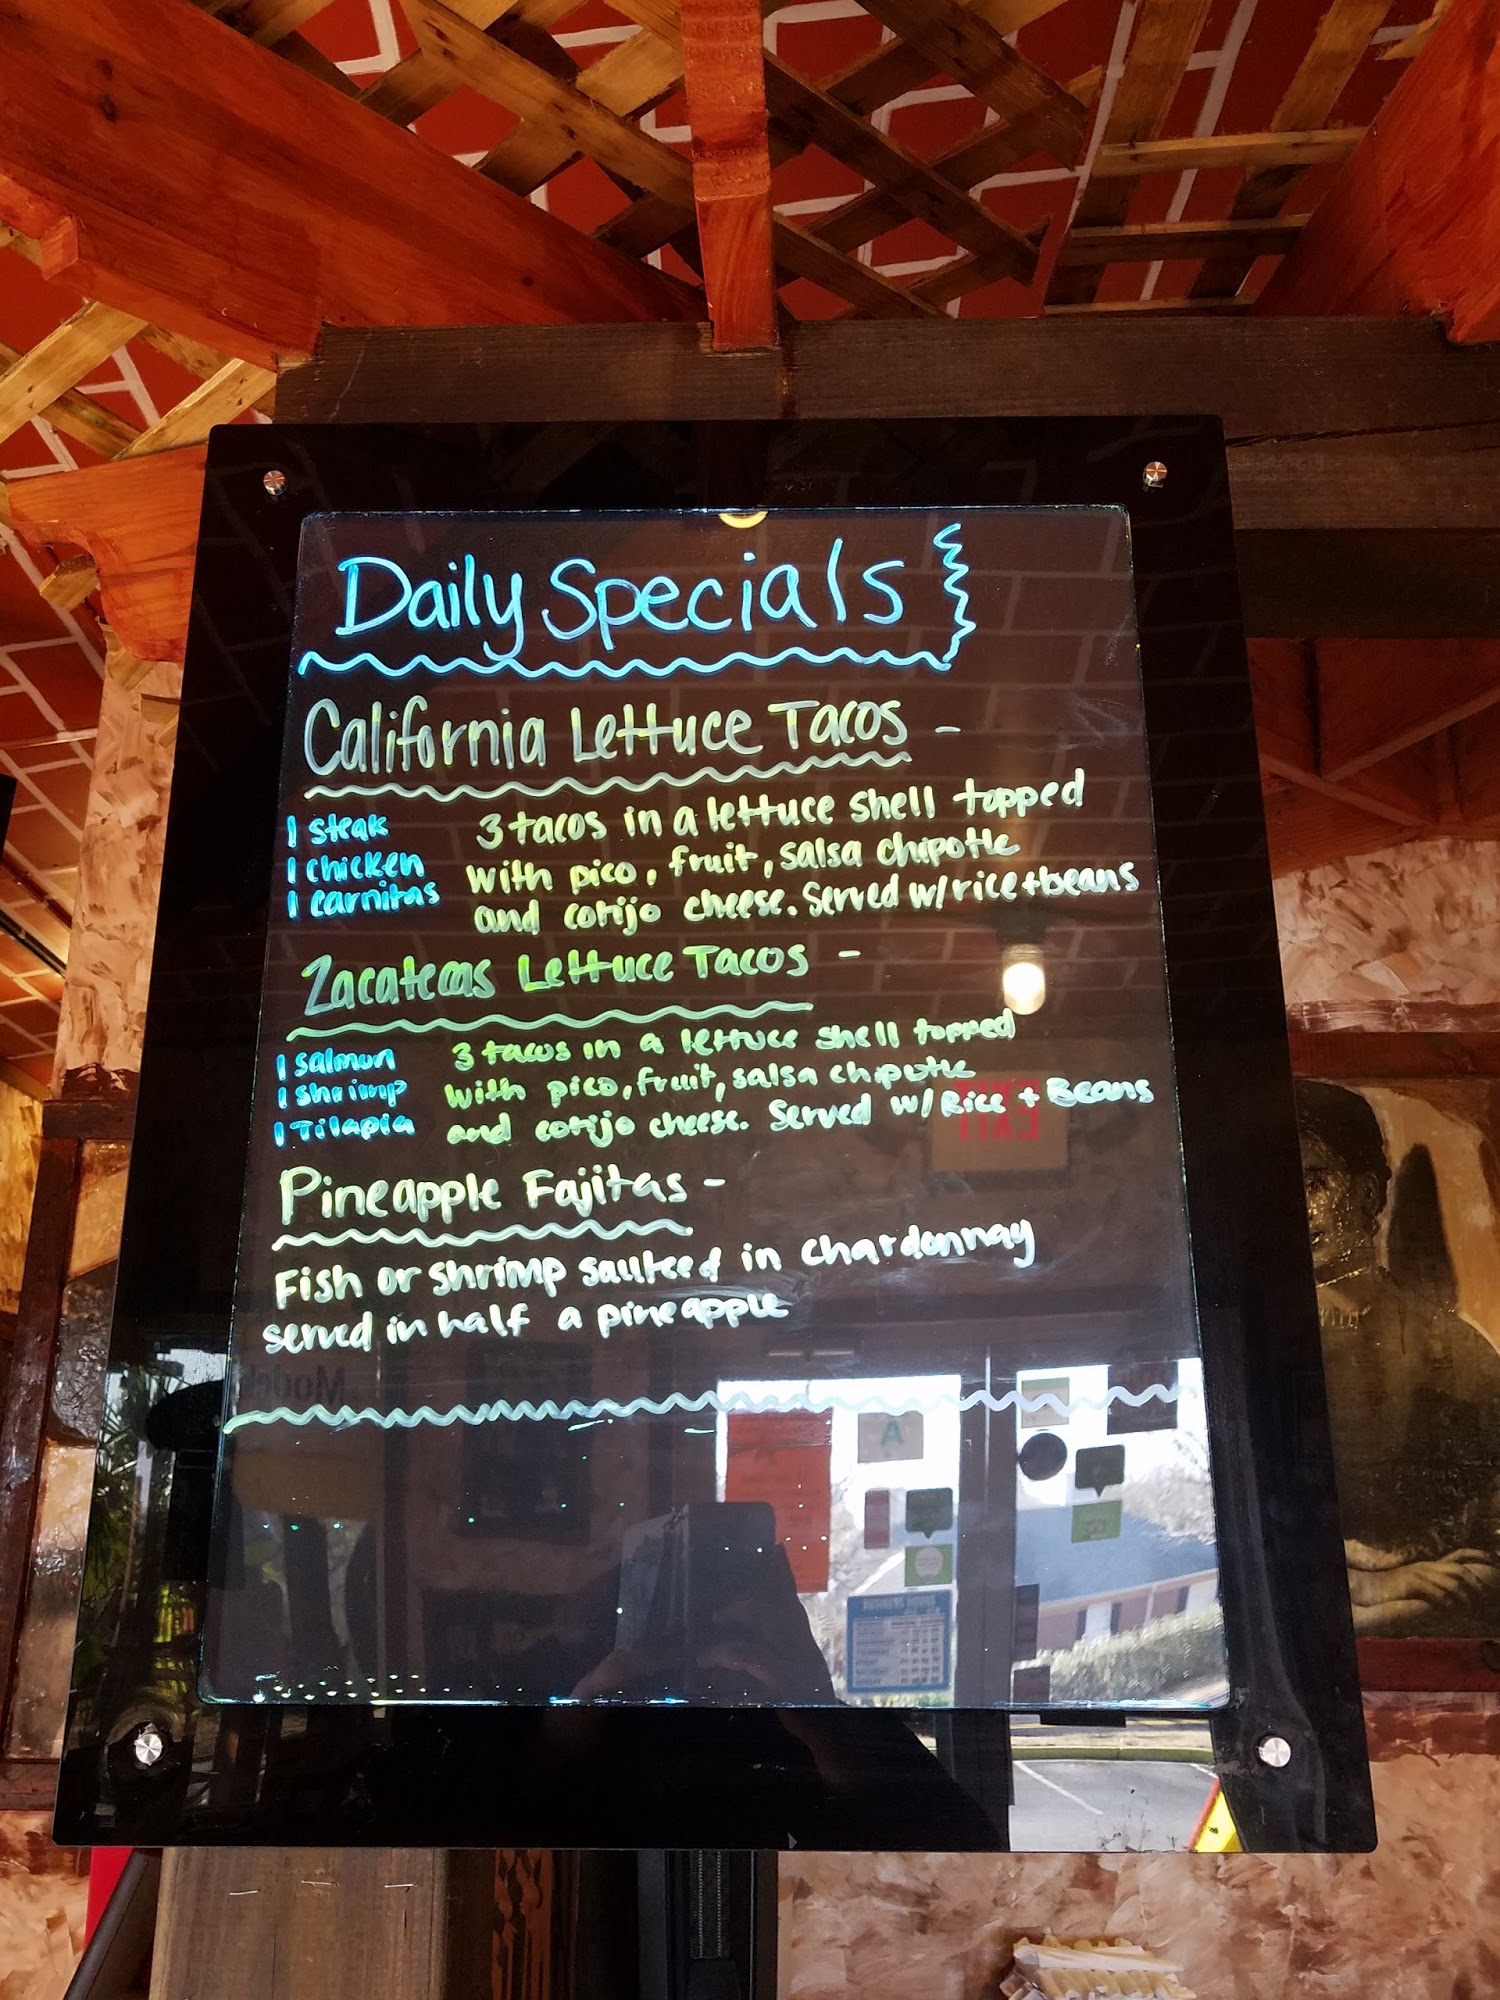 Daily Specials
California Lettuce Tacos -
1 steak
1 chicken
1 carnitas
3 tacos in a lettuce shell topped
with pico, fruit, salsa chipotle
and cotijo cheese. Served w/ rice + beans
Zacatecas Lettuce Tacos -
1 salmon
1 shrimp
1 Tilapia
3 tacos in a lettuce shell topped
with pico, fruit, salsa chipotle
and cotijo cheese. Served w/ Rice + Beans
Pineapple Fajitas -
Fish or shrimp sauteed in chardonnay
served in half a pineapple
EXIT
Model
A